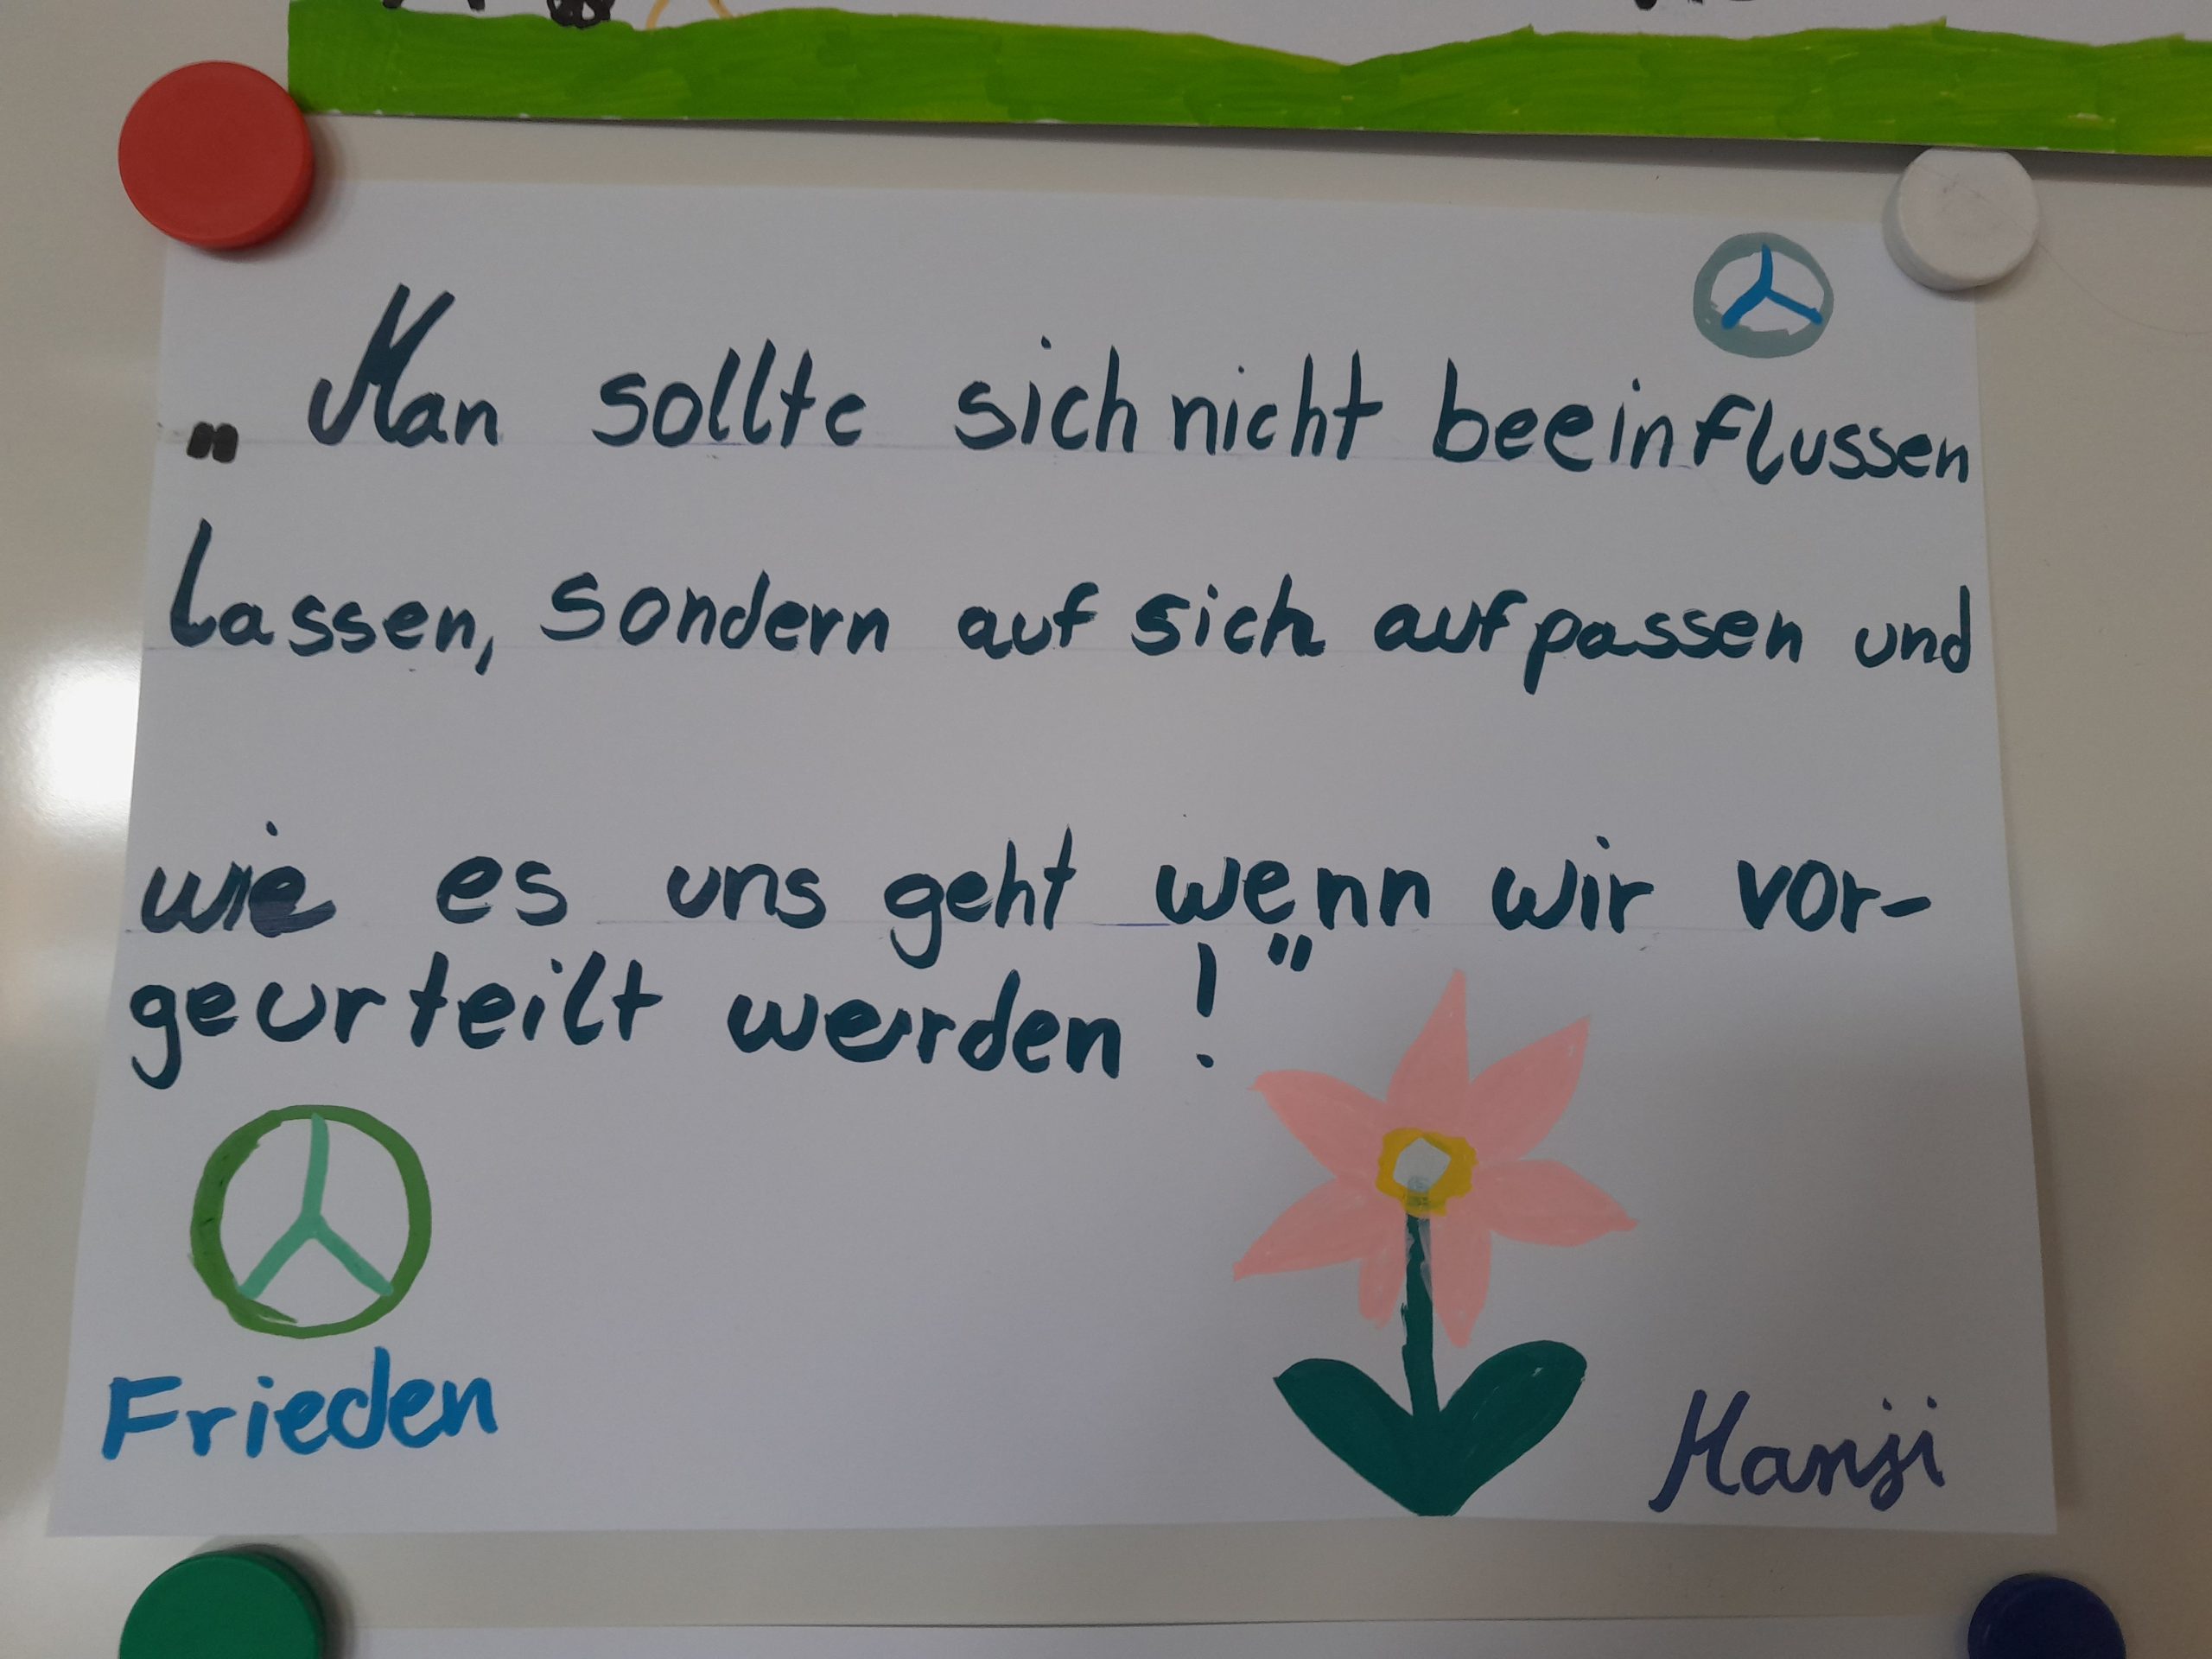 „Man sollte sich nicht beeinflussen
Lassen, sondern auf sich aufpassen und
wie es uns geht wenn wir vor-
geurteilt werden!"
Frieden
Hanji